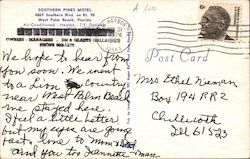 SOUTHERN PINES MOTEL
4869 Southern Blvd. on Rt. 98
West Palm Beach, Florida
Air Conditioned - Heated - T.V. Optional
OWNERS - MANAGERS - JIM & GLADYS
PHONE
We hope to hear from
you soon. We went
to a Lion Country
near West Palm Beach
we stayed here.
I feel a little better
but my eyes are going
fast. Love to Mina
and you too Jeannette - Mae
Post Card
Mrs Ethel
Box 194 RR2
Chillicothe
Ill 61523
6c